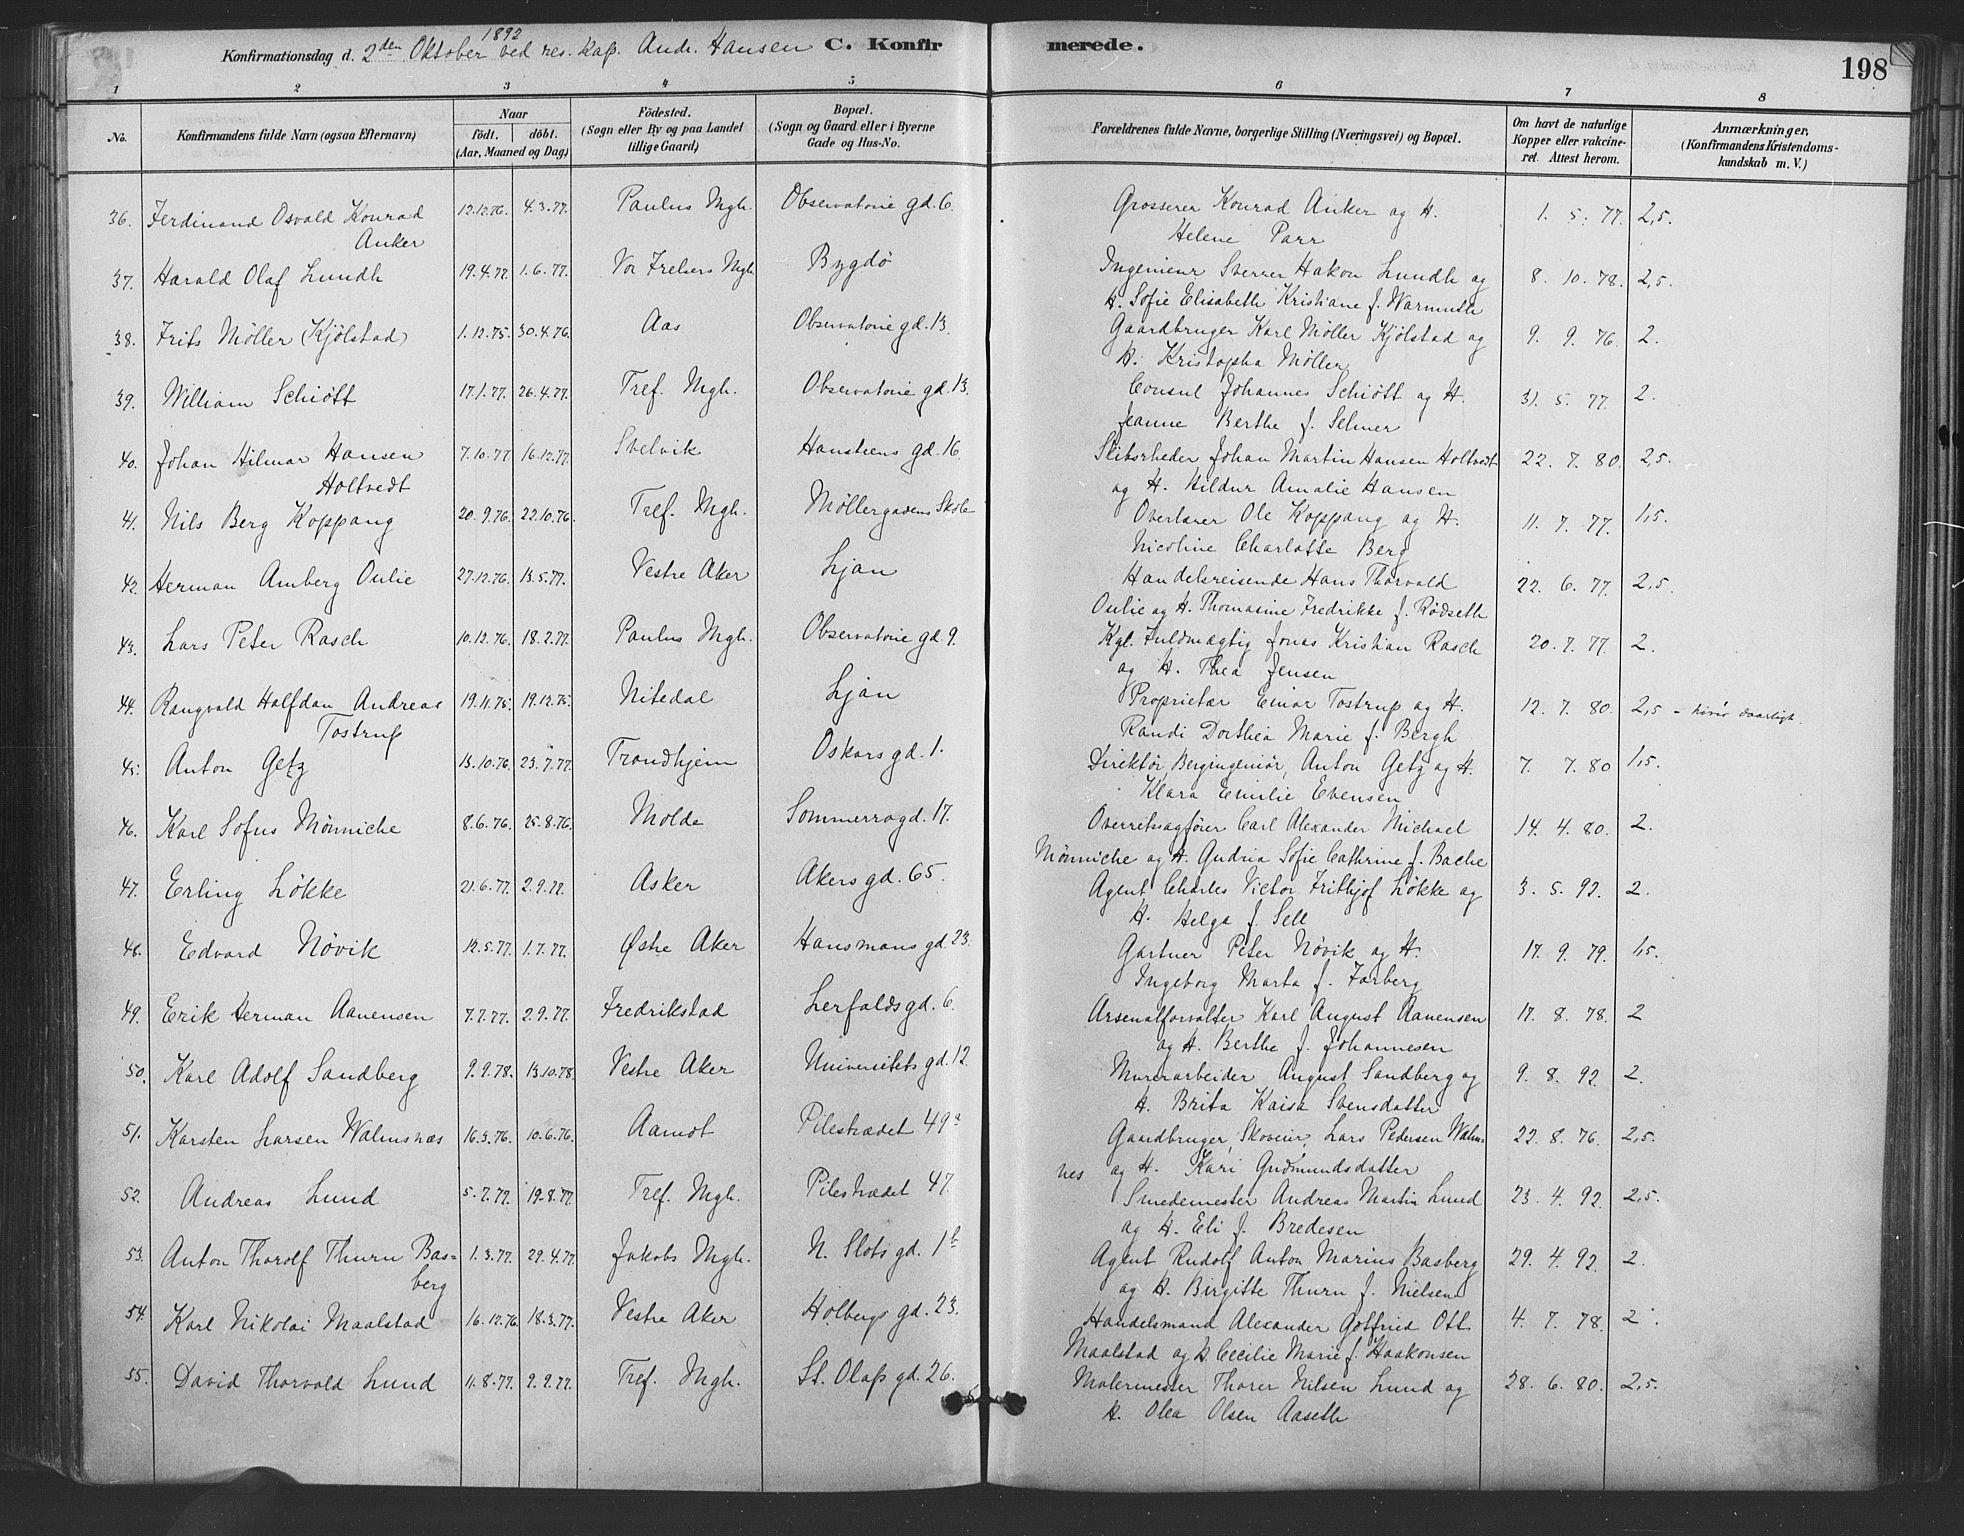 Konfirmationsdag d. 2den Oktober 1892 ved res. Kap. Andr. Hansen C. Konfirmerede. 198
1 2 3 4 5 6 7 8
No. Konfirmandens fulde Navn (ogsaa Efternavn) Naar födt. döbt. (Aar, Maaned og Dag) Födested. (Sogn eller By og paa Landet tillige Gaard) Bopæl. (Sogn og Gaard eller i Byerne Gade og Hus-No. Forældrenes fulde Navne, borgerlige Stilling (Næringsvei) og Bopæl. Om havt de naturlige Kopper eller vakcineret. Attest herom. Anmærkninger. (Konfirmandens Kristendomskundskab m. V.)
36. Ferdinand Osvald Konrad 12.12.76. 4.3.77. Paulus Mgh. Observatorie gd. 6. Grosserer Konrad Anker og H. 1. 5. 77. 2,5.
Anker Helene Parr
37. Harald Olaf Lundh 19.4.77. 1.6.77. Vor Frelsers Mgh Bygdö Ingenieur Sverre Hakon Lundh og 8. 10. 78. 2,5.
H. Sofie Elisabeth Kristiane f. Warmuth
38. Frits Möller (Kjölstad) 1.12.75. 30.4.76. Aas Observatorie gd. 13. Gaardbruger Karl Möller Kjölstad og 9. 9. 76. 2.
H. Kristopha Möller
39. William Schiött 17.1.77. 26.4.77. Tref. Mgh. Observatorie gd. 13. Consul Johannes Schiött og H. 31. 5. 77. 2.
Jeanne Berthe f. Selmer
40. Johan Hilmar Hansen 7.10.77 16.12.77. Svelvik Hansteens gd. 16. Skibsrheder Johan Martin Hansen Holtvedt 22. 7. 80. 2,5.
Holtvedt og H. Hildur Amalie Hansen
41. Nils Berg Koppang 20.9.76. 22.10.76. Tref. Mgh. Möllergadens Skole Overlærer Ole Koppang og H. 11. 7. 77. 1,5.
Nicoline Charlotte Berg
42. Herman Amberg Oulie 27.12.76. 13.5.77. Vestre Aker Ljan Handelsreisende Hans Thorvald 22. 6. 77. 2,5.
Oulie og H. Thomasine Fredrikke f. Rödseth
43. Lars Peter Rasch 10.12.76. 18.2.77. Paulus Mgh. Observatorie gd. 9. Kgl. Fuldmægtig Jonas Kristian Rasch 20. 7. 77. 2.
og H. Thea Jensen
44. Rangvald Halfdan Andreas 19.11.75. 19.12.75. Nitedal Ljan Proprietær Einar Tostrup og H. 12. 7. 80. 2,5 – hörer daarligt.
Tostrup Randi Dorthea Marie f. Bergh
45. Anton Getz 13.10.76. 23.7.77. Trondhjem Oskars gd. 1. Direktör, Bergingeniör, Anton Getz og H. 7. 7. 80 1,5.
Klara Emilie Evensen
46. Karl Sofus Mönniche 8.6.76. 25.8.76. Molde Sommerrogd. 17. Overretssagförer Carl Alexander Michael 14. 4. 80. 2.
Mönniche og H. Gudria Sofie Cathrine f. Bache
47. Erling Lökke 21.6.77. 2.9.77. Asker Akers gd. 65. Agent Charles Victor Frithjof Lökke og 3. 5. 92. 2.
H. Helga f. Sell
48. Edvard Növik 12.5.77. 1.7.77. Østre Aker Hansmans gd. 23. Gartner Peter Növik og H. 17. 9. 79. 1,5.
Ingeborg Marta f. Farberg
49. Erik Herman Aanensen 7.7.77. 2.9.77. Fredrikstad Lerfalds gd. 6. Arsenalforvalter Karl August Aanensen 17. 8. 78. 2
og H. Berthe f. Johannesen
50. Karl Adolf Sandberg 9.9.78. 13.10.78. Vestre Aker Universitets gd. 12. Murerarbeider August Sandberg og 9. 8. 92. 2.
H. Brita Kaisa Svensdatter
51. Karsten Larsen Walmsnæs 16.3.76. 10.6.76. Aamot Pilestrædet 49a Gaardbruger, Skoveier, Lars Pedersen Walms- 22. 8. 76. 2,5.
nes og H. Kari Gudmundsdatter
52. Andreas Lund 5.7.77. 19.8.77. Tref. Mgh. Pilestrædet 47. Smedemester Andreas Martin Lund 23. 4. 92. 2,5.
og H. Eli f. Bredesen
53. Anton Thorolf Thurn Bas- 1.3.77. 29.4.77. Jakobs Mgh. N. Slots gd. 1b Agent Rudolf Anton Marius Basberg 29. 4. 92. 2.
berg og H. Birgitte Thurn f. Nielsen
54. Karl Nikolai Maalstad 16.12.76. 18.3.77. Vestre Aker Holbergs gd. 23. Handelsmand Alexander Gotfried Ott. 4. 7. 78. 2.
Maalstad og H. Cecilie Marie f. Haakonsen
55. David Thorvald Lund 11.8.77. 9.9.77. Tref. Mgh. St. Olafs gd. 26. Malermester Thorer Nilsen Lund og 28. 6. 80. 2,5.
H. Olea Olsen Aaseth